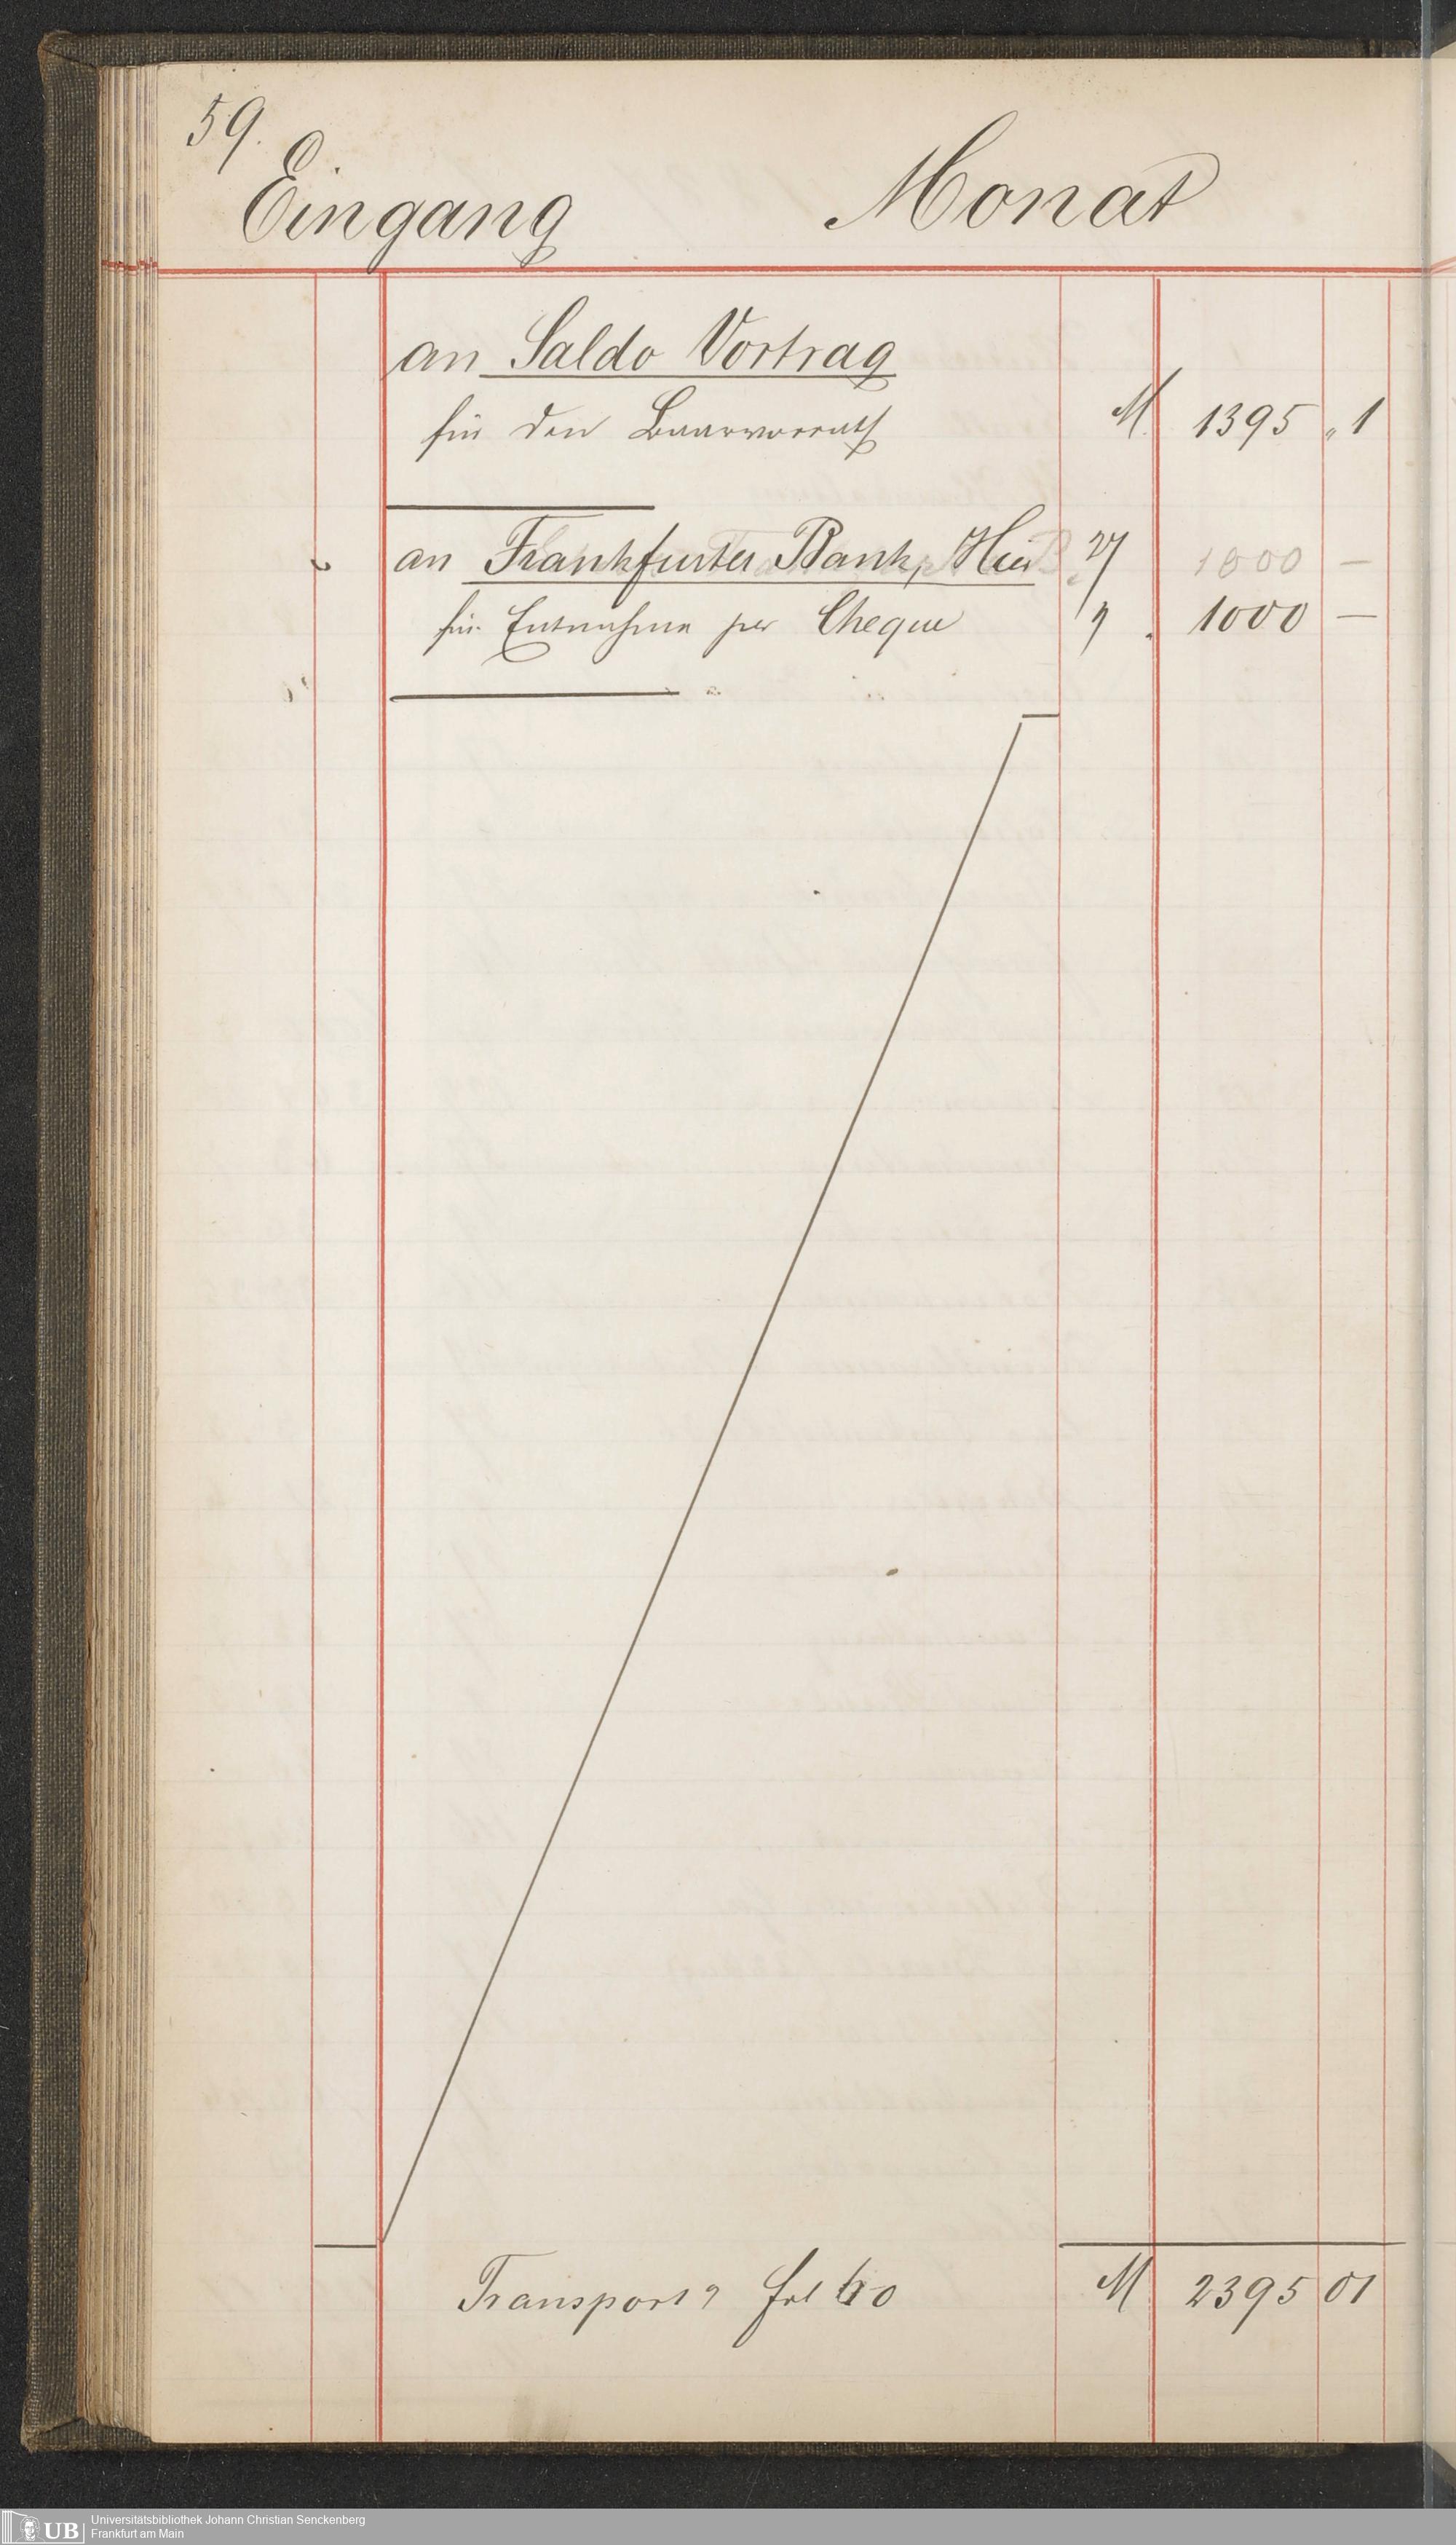 59.
Eingang Monat
an Saldo Vortrag
für den Baarvorrath M. 1395 „ 1
an Frankfurter Bank, Hier 1000 —
für Entnahme per Cheque 1000 —
Transport fol 60 M 2395 01
UB Universitätsbibliothek Johann Christian Senckenberg
Frankfurt am Main